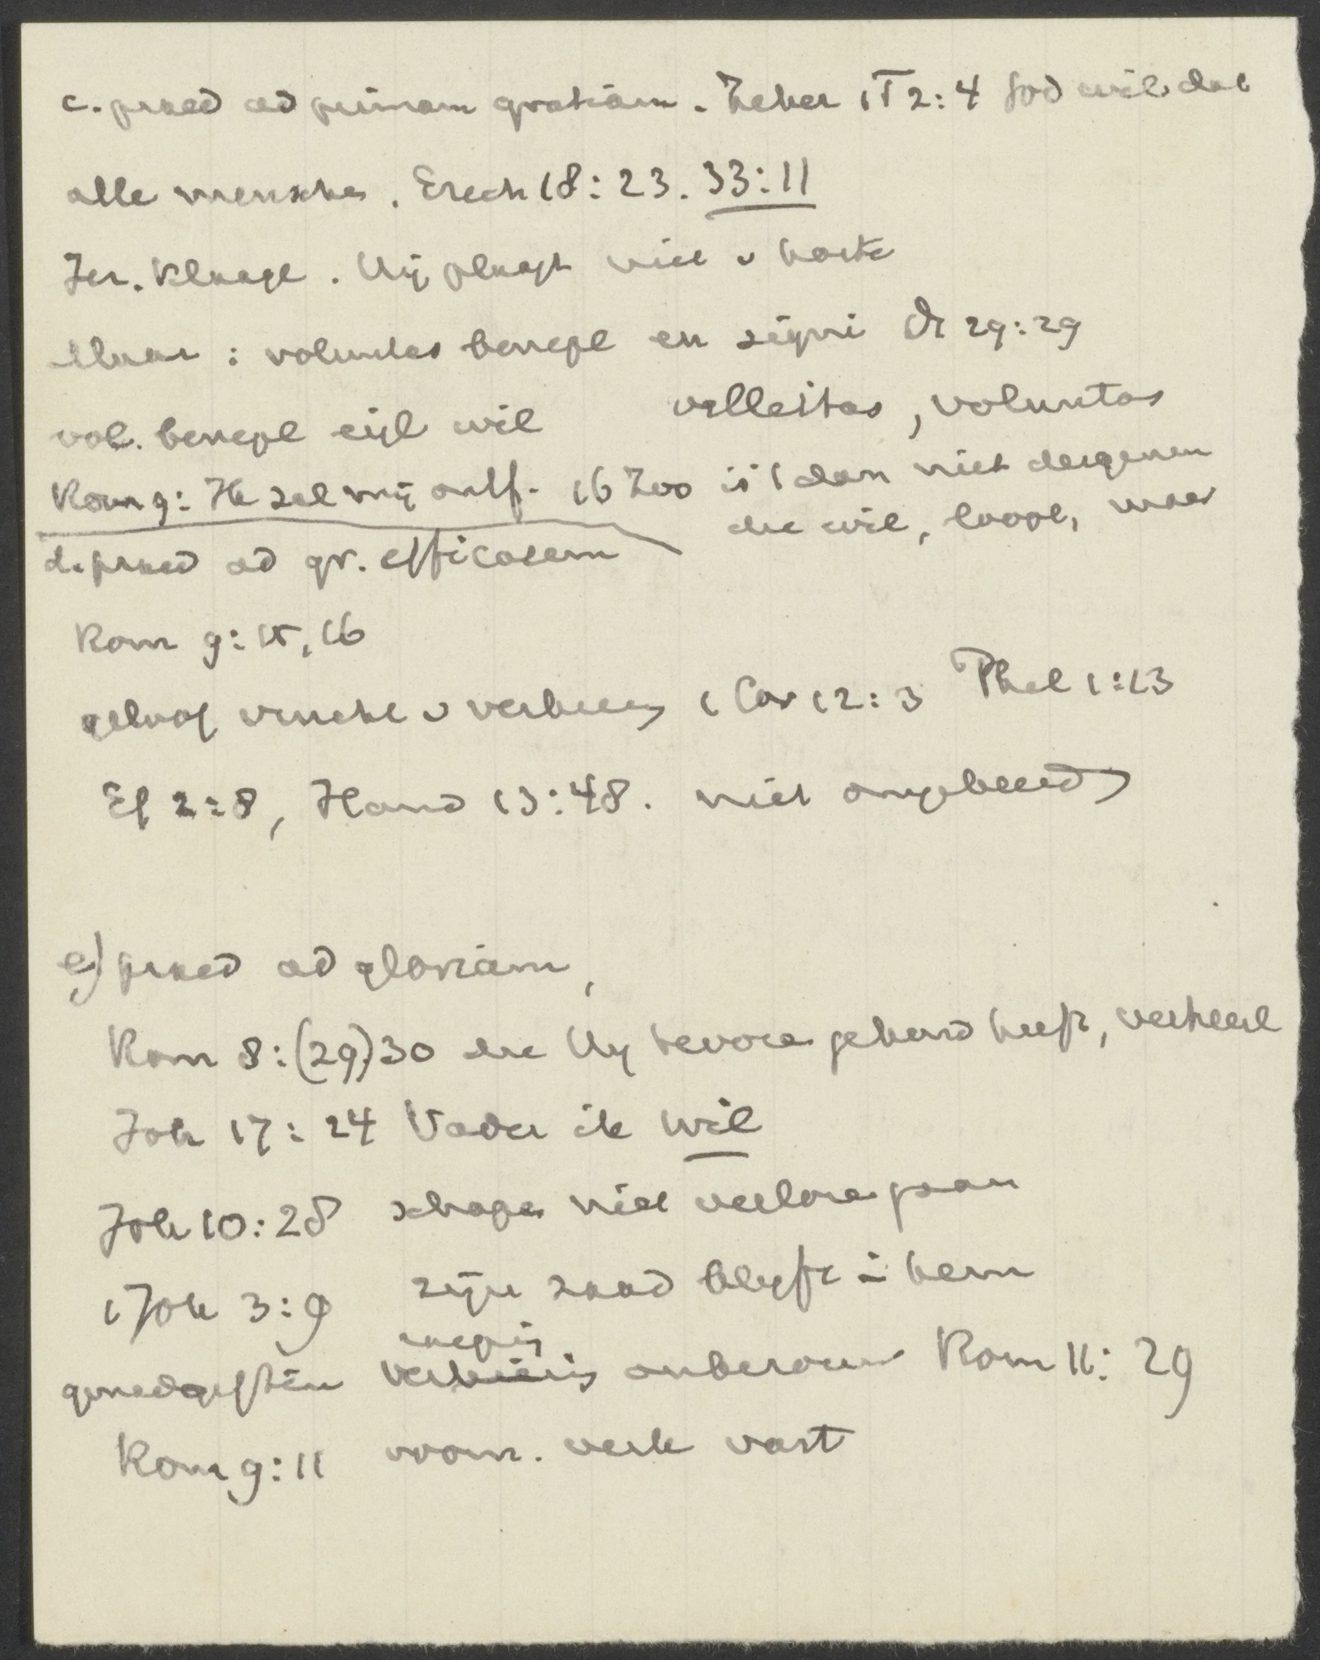 c. praed ad primam gratiam. Zeker 1 T 2:4 God wil dat
alle mensche. Ezech 18:23. 33:11
Jer. Klaagl. Hij plaagt niet v harte
Maar: voluntas benepl en signi Dt 29:29
vol. benepl eigl wil velleitas, voluntas
Rom 9: Ik zal mij ontf. 16 Zoo is 't dan niet desgenen
die wil, loopt, maar
d. praed ad gr. efficacem
Rom 9:15,16
geloof vrucht v verkiez 1 Cor 12:3 Phil 1:13
Ef 2:8, Hand 13:48. niet omgekeerd
e) praed ad gloriam,
Rom 8:(29)30 die Hij tevore gekend heeft, verheerl
Joh 17:24 Vader ik wil
Joh 10:28 schape niet verlore gaan
1 Joh 3:9 zijn zaad blijft i hem
genadegiften verkiezig onberouw Rom 11:29
Rom 9:11 voorn. verk vast